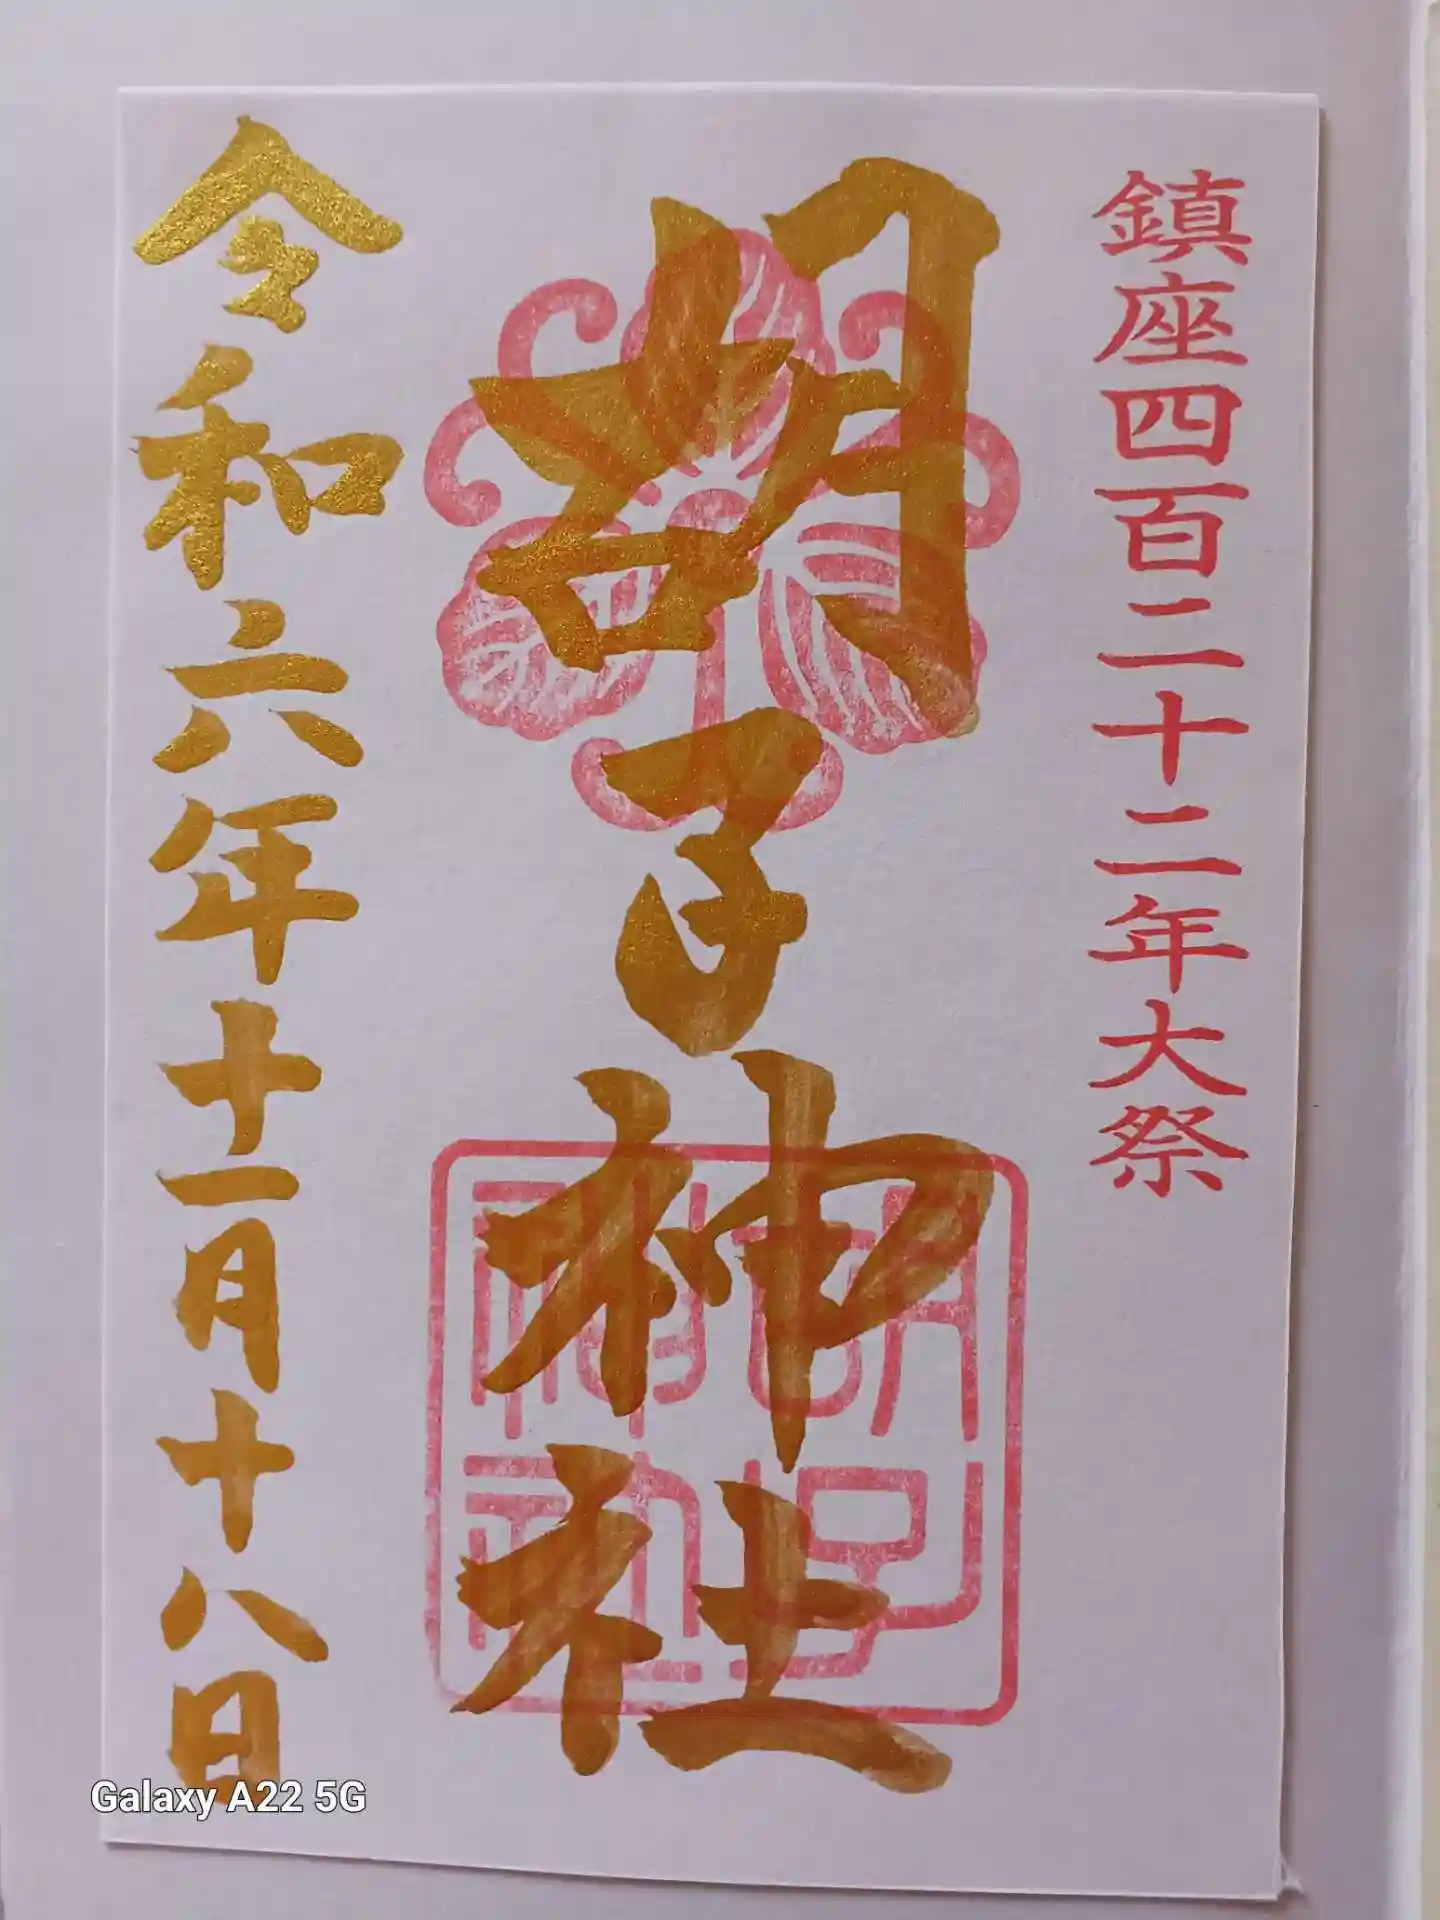 鎮座四百二十二年大祭
胡子神社
胡子神社
令和六年十一月十八日
Galaxy A22 5G